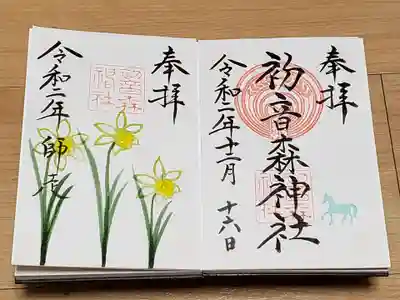 奉拝
初音森神社
令和二年十二月 十六日
奉拝
令和二年 師走